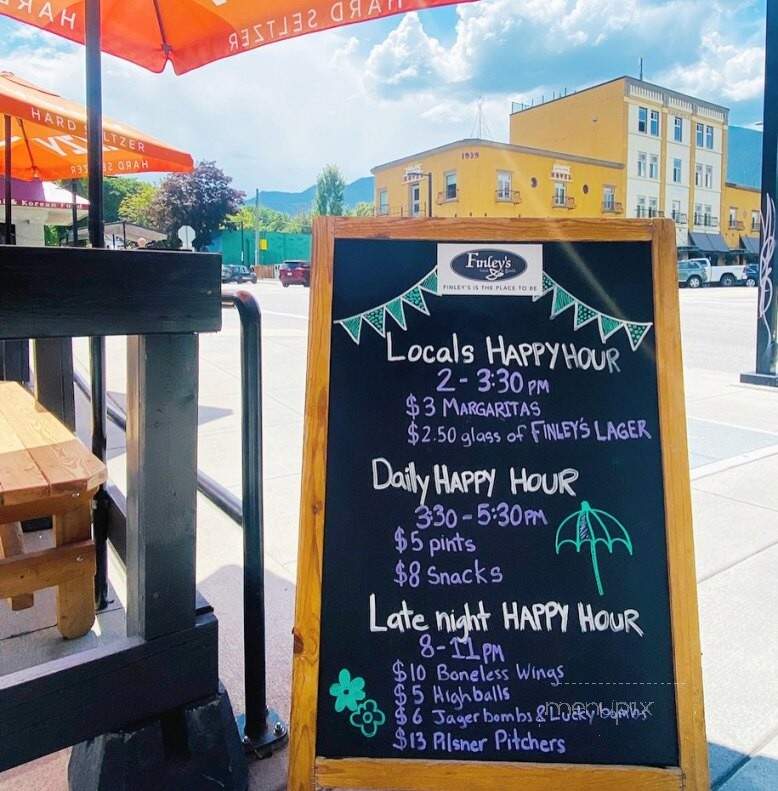 HARD SELTZER
HARD SELTZER
HARD SO
1939
HOTEL
Korean
Finley's
FINLEY'S IS THE PLACE TO BE
Locals HAPPY HOUR
2 - 3:30 PM
$3 MARGARITAS
$2.50 glass of FINLEY'S LAGER
Daily HAPPY HOUR
3:30 - 5:30PM
$5 pints
$8 Snacks
Late night HAPPY HOUR
8-11 PM
$10 Boneless Wings
$5 Highballs
$6 Jagerbombs & Lucky bombs
$13 Pilsner Pitchers
menupix